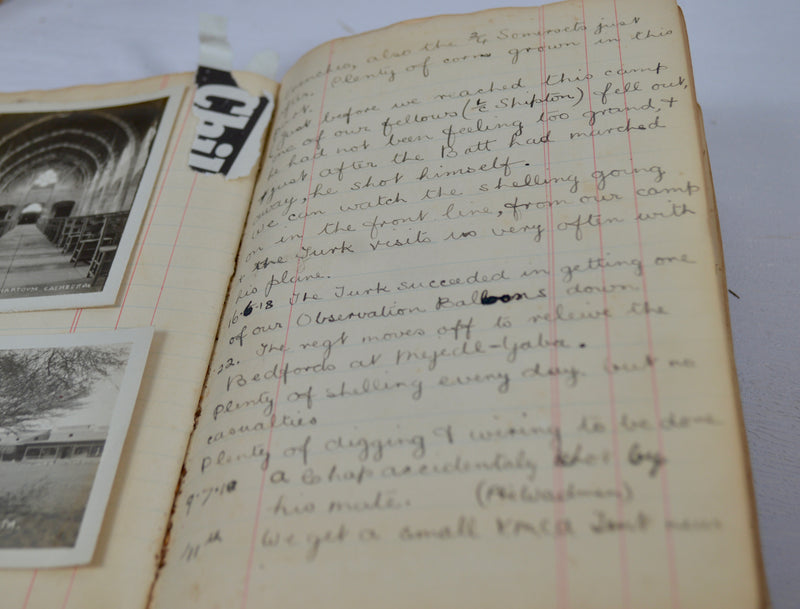 KHARTOUM CATHEDRAL
Chit
trenches, also the 2/4 Somersets just
Plenty of corn grown in this
Just before we reached this camp
one of our fellows (L/C Shipton) fell out,
he had not been feeling too grand, +
just after the Batt had marched
away, he shot himself.
We can watch the shelling going
on in the front line, from our camp
+ the Turk visits us very often with
his plane.
16.6.18 The Turk succeeded in getting one
of our Observation Balloons down
22. The regt moves off to releive the
Bedfords at Mejedl-Yaba.
Plenty of shelling every day. but no
casualties
Plenty of digging & wiring to be done
9.7.18 a Chap accidentaly shot by
his mate.
11th We get a small YMCA Tent near